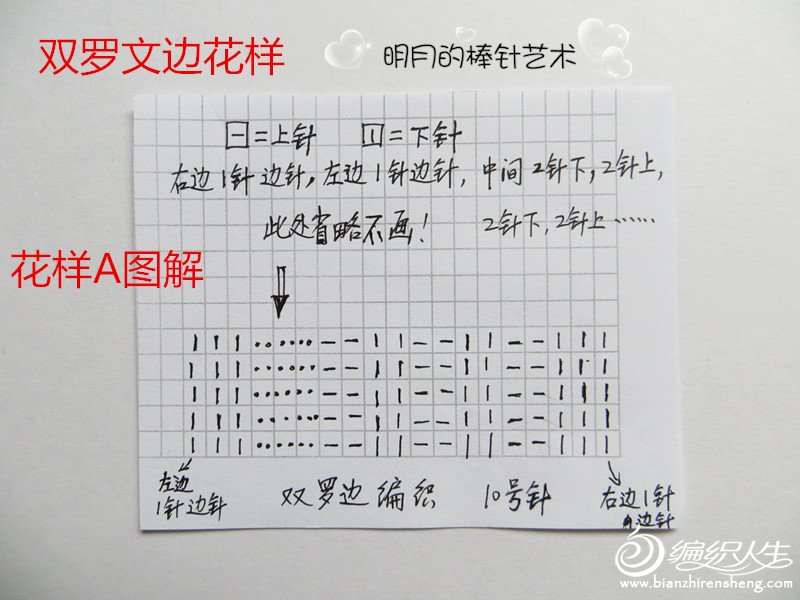 双罗文边花样
明月的棒针艺术
一=上针 |=下针
右边1针边针,左边1针边针,中间2针下,2针上,
此处省略不画! 2针下,2针上……
花样A图解
| | | ······ — — | | — — | | — — | | |
| | | ······ — — | | — — | | — — | | |
| | | ······ — — | | — — | | — — | | |
| | | ······ — — | | — — | | — — | | |
| | | ······ — — | | — — | | — — | | |
左边
1针边针
双罗边编织 10号针
右边1针
边针
编织人生
www.bianzhirensheng.com